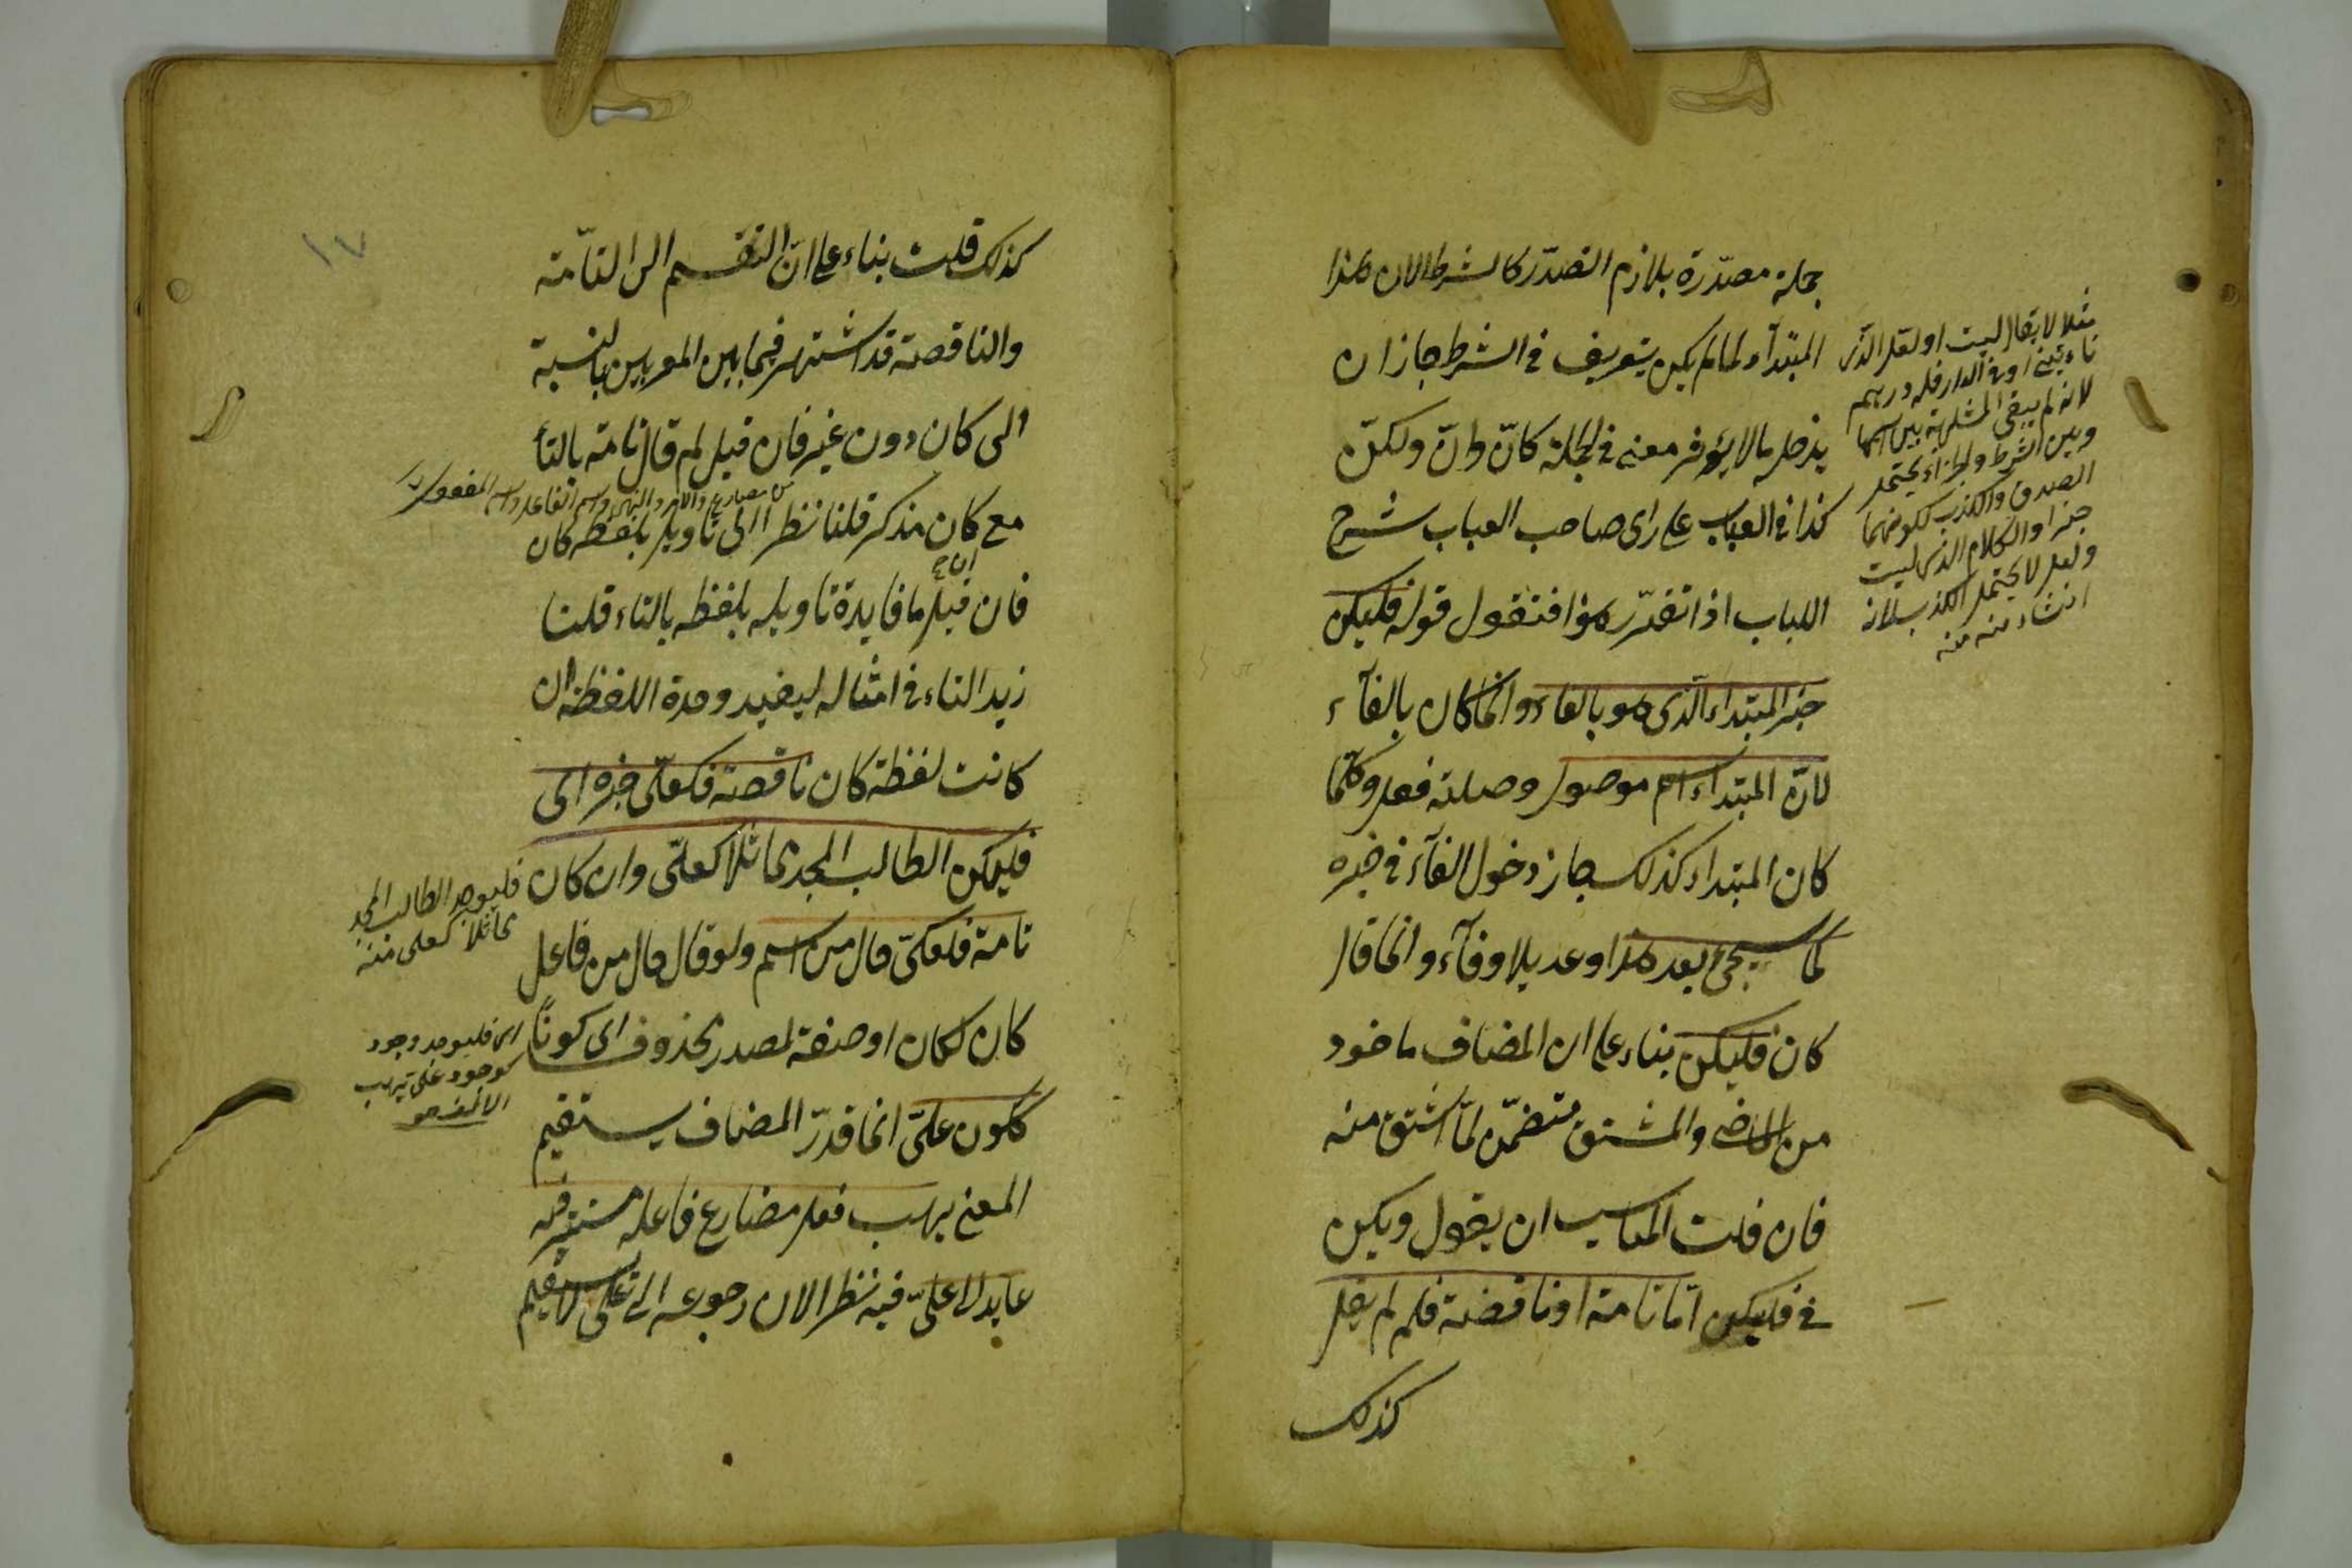 جملة مصدّرة بلازم التصدّر كالشرط الان هذا
المبتدأ ولما لم يكن يتعريف في الشرط جاز ان
يدخله ما لا يؤثر معنى في الجملة كانّ وانّ ولكنّ
كذا في العباب على راى صاحب العباب شرح
اللباب اذا تقرّر هذا فنقول قوله فليكن
خبر المبتداء الذى هو بالفاء وانما كان بالفآء
لانّ المبتداء اسم موصول وصلته فعل وكلّما
كان المبتداء كذلك جاز دخول الفآء في خبره
كما سيجئ بعد هذا وعد بلا وفآء وانما قال
كان فليكن بناء على ان المضاف ماخوذ
من الماضى والمشتق متضمّن لمّا اشتق منه
فان قلت المناسب ان يقول ويكن
في فليكن امّا تامة او ناقصة فلم لم يقل
كذلك
مثلا لا يقال ليت او لعل الذى
ياءتينى او في الدار فله درهم
لانه لم يبقى المشابهة بين اسمها
وبين الشرط والجزاء يحتمل
الصدق والكذب لكونهما
خبرا والكلام الذى ليت
ولعل لا يحتمل الكذب لانه
انشاء منه منه
١٧
كذلك قلت بناء على انّ التقسيم الى التآمة
والناقصة قد اشتهر فيما بين المعربين بالنسبة
الى كان دون غير فان قيل لم قال تامة بالتأ
من مضارع والامر والنهى واسم الفاعل واسم المفعول
مع كان مذكر قلنا نظرا الى تاويل بلفظة كان
فان قيل ما فايدة تاويله بلفظه بالتاء قلنا
زيد التاء في امثاله ليفيد وحدة اللفظة ان
كانت لفظة كان ناقصة فكعلّى خبره اى
فليكن الطالب المجد مماثلا كعلّى وان كان
تامة فكعلىّ حال من اسم ولو قال حال من فاعل
كان لكان او صفة لمصدر محذوف اى كونًا
ككون علىّ انما قدّر المضاف يستقيم
المعنى يرهب فعل مضارع فاعله مستتر فيه
عايد الى علىّ فيه نظر الان رجوعه الى على يستقيم
فليوجد الطالب المجد
مماثلا كعلى منه
اى فليوجد وجود
كوجود على يرهب